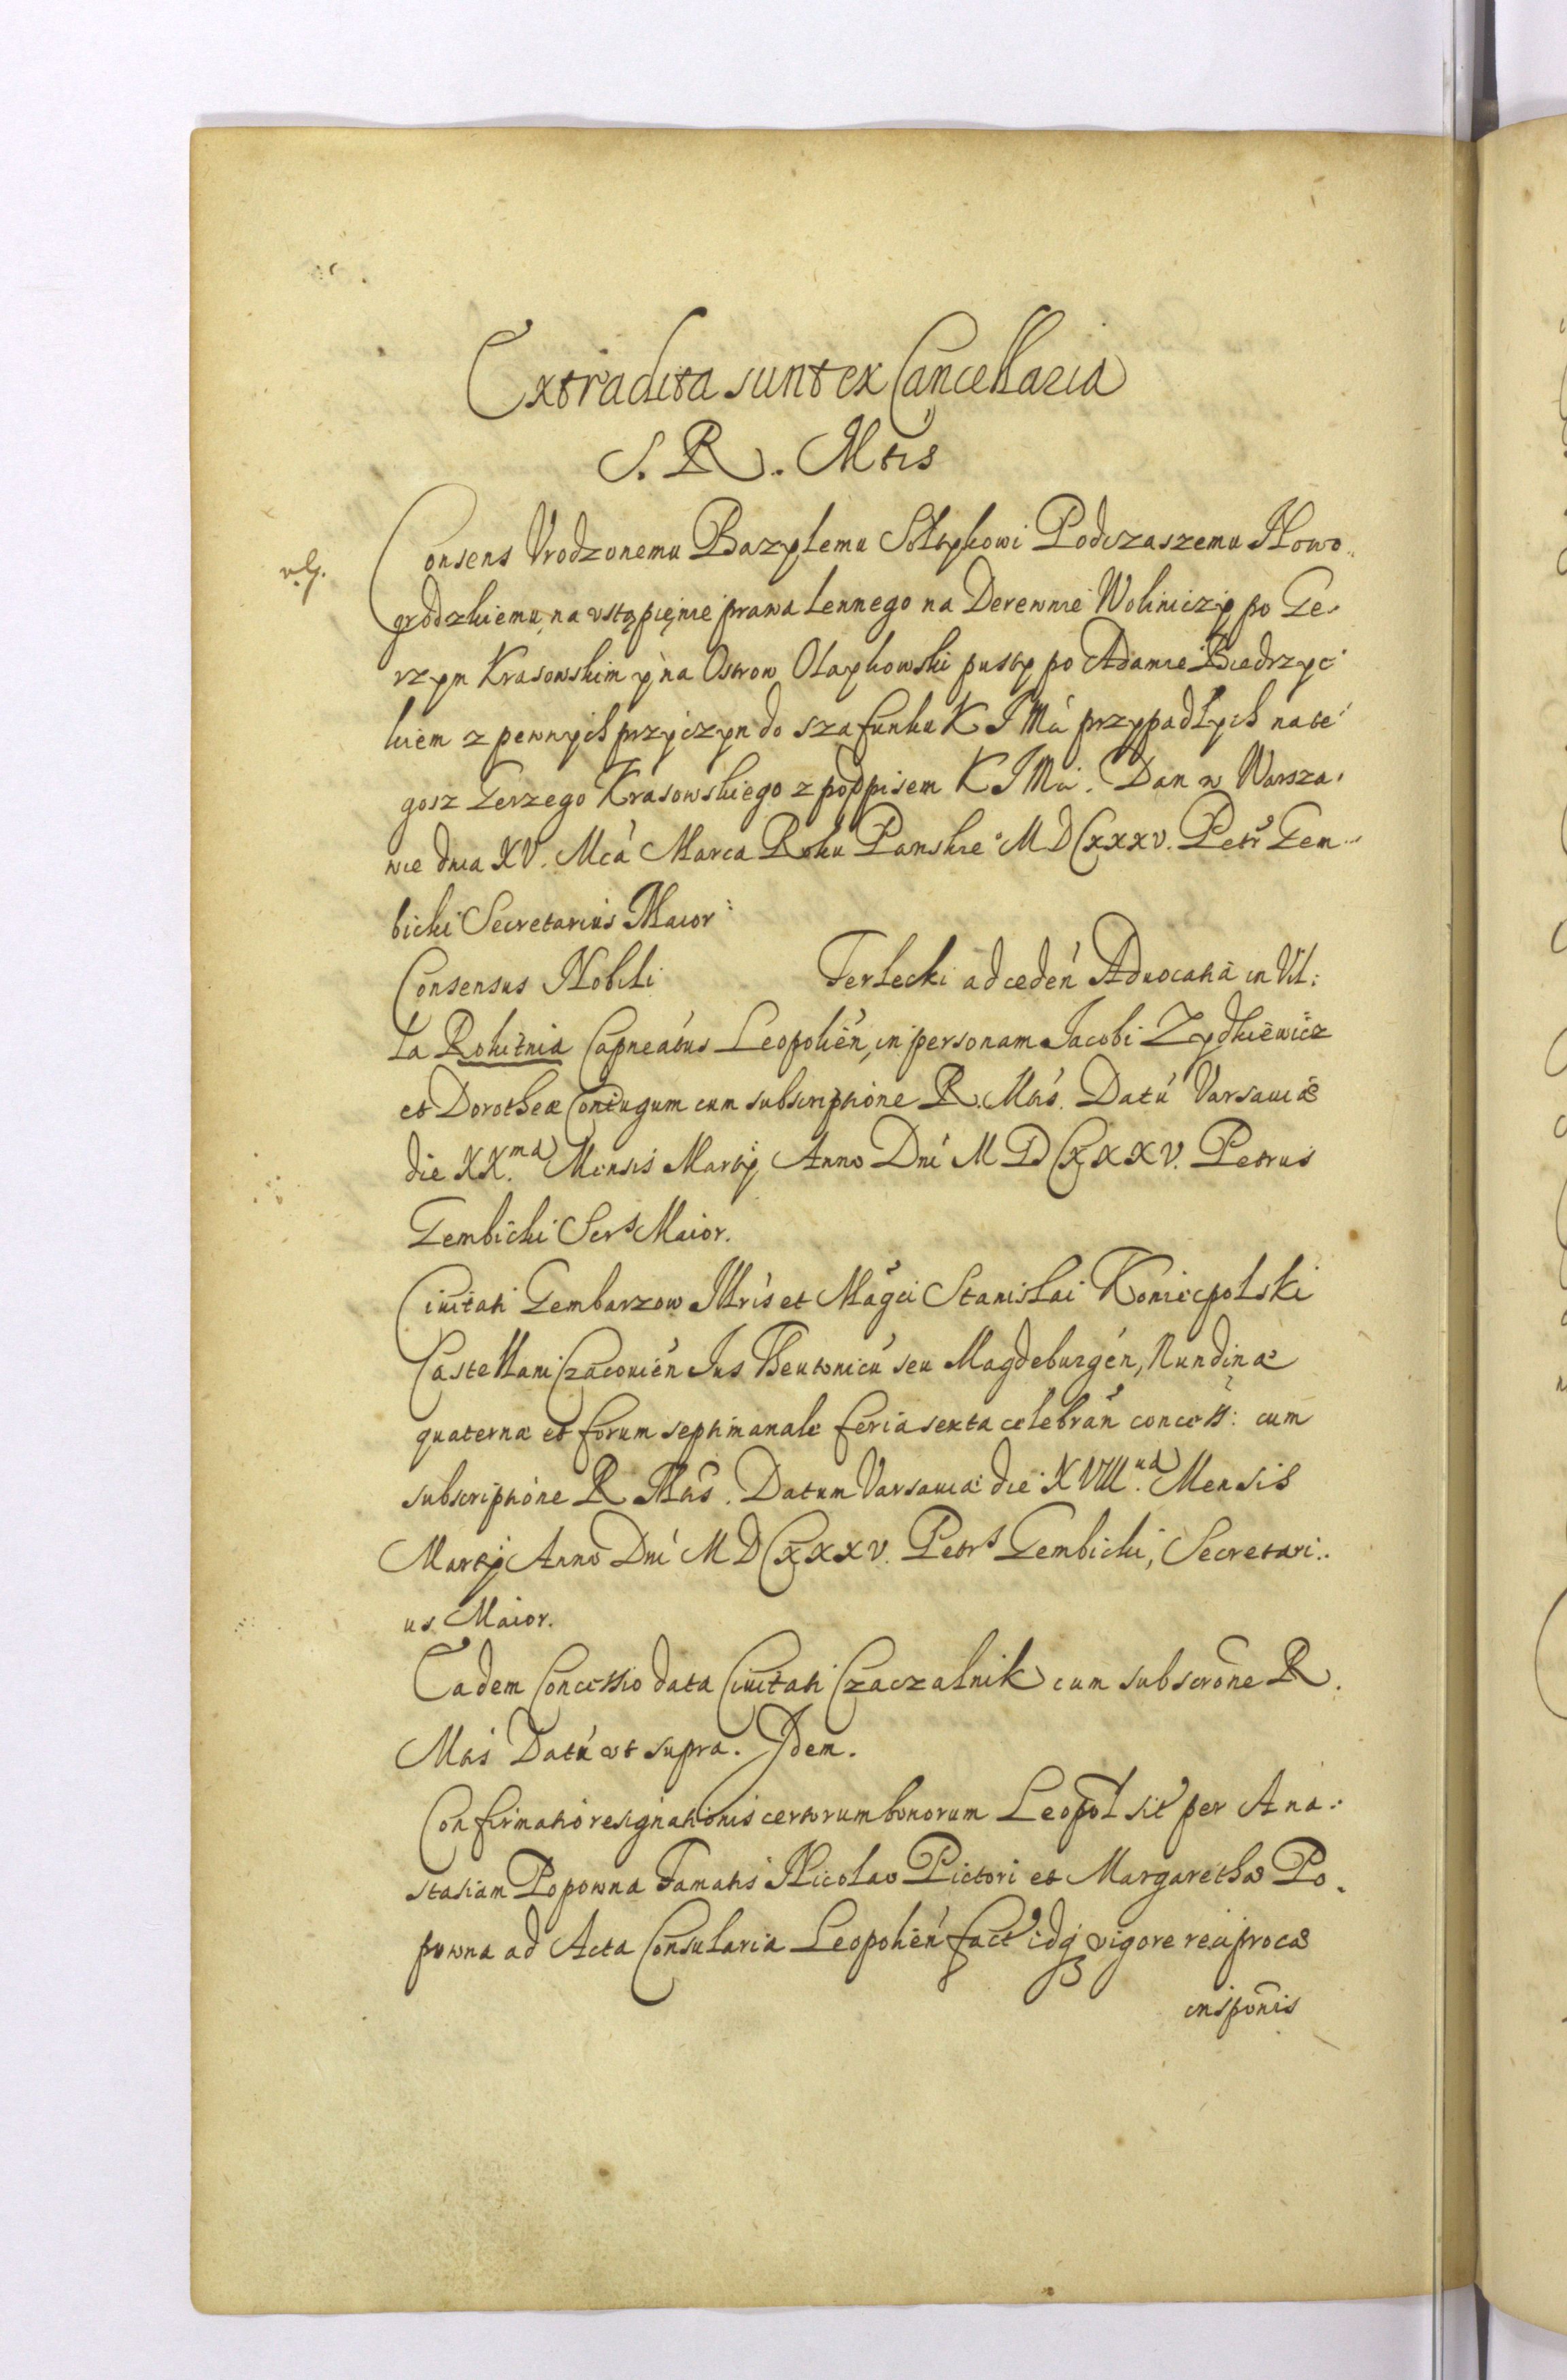 Extradita sunt ex Cancellaria
S. R. Mtis
Consens Vrodzonemu Bazylemu Sołtykowi Podczaszemu Nowo
grodzkiemu, na vstąpięnie prawa Lennego na Derewnie Woliniczÿ po Ge
rzym Krasowskim ÿ na Ostrow Olaykowski pusty po Adamie Biedrzyc
kiem z pewnych przyczyn do szafunku K J Mći przypadłych na te
gosz Gerzego Krasowskiego z podpisem K J Mći. Dan w Warsza
wie dnia XV. Mca Marca Roku Panskie° MDCXXXV. Petr9 Gem
bicki Secretarius Maior
Consensus Nobili Terlecki ad ceden Aduocatia in Vil:
la Rokitnia Capneatus Leopolien, in personam Jacobi Zydkiewicz
et Dorotheæ Coniugum cum subscriptione R. Mtis. Datu Varsauiæ
die XX.ma Mensis Martÿ Anno Dni MDCXXXV. Petrus
Gembicki Scrs Maior.
Ciuitati Gembarzow Illris et Magci Stanislai Koniecpolski
Castellani Cracouien Jus Theutonicu seu Magdeburgen, Nundinæ
quaternæ et forum septimanale feria sexta celebran concess: cum
subscriptione R Mtis. Datum Varsauiæ die XVIII.ua Mensis
Martÿ Anno Dni MDCXXXV. Petrs Gembicki, Secretari..
us Maior.
Eadem Concessio data Ciuitati Czaczalnik cum subscrone R.
Mtis Datu vt supra. Idem.
Confirmatio resignationis certorum bonorum Leopol sit per Ana:
stasiam Popowna Famatis Nicolao Pictori et Margarethæ Po
powna ad Acta Consularia Leopolien fact idq3 vigore reciprocæ
insponis